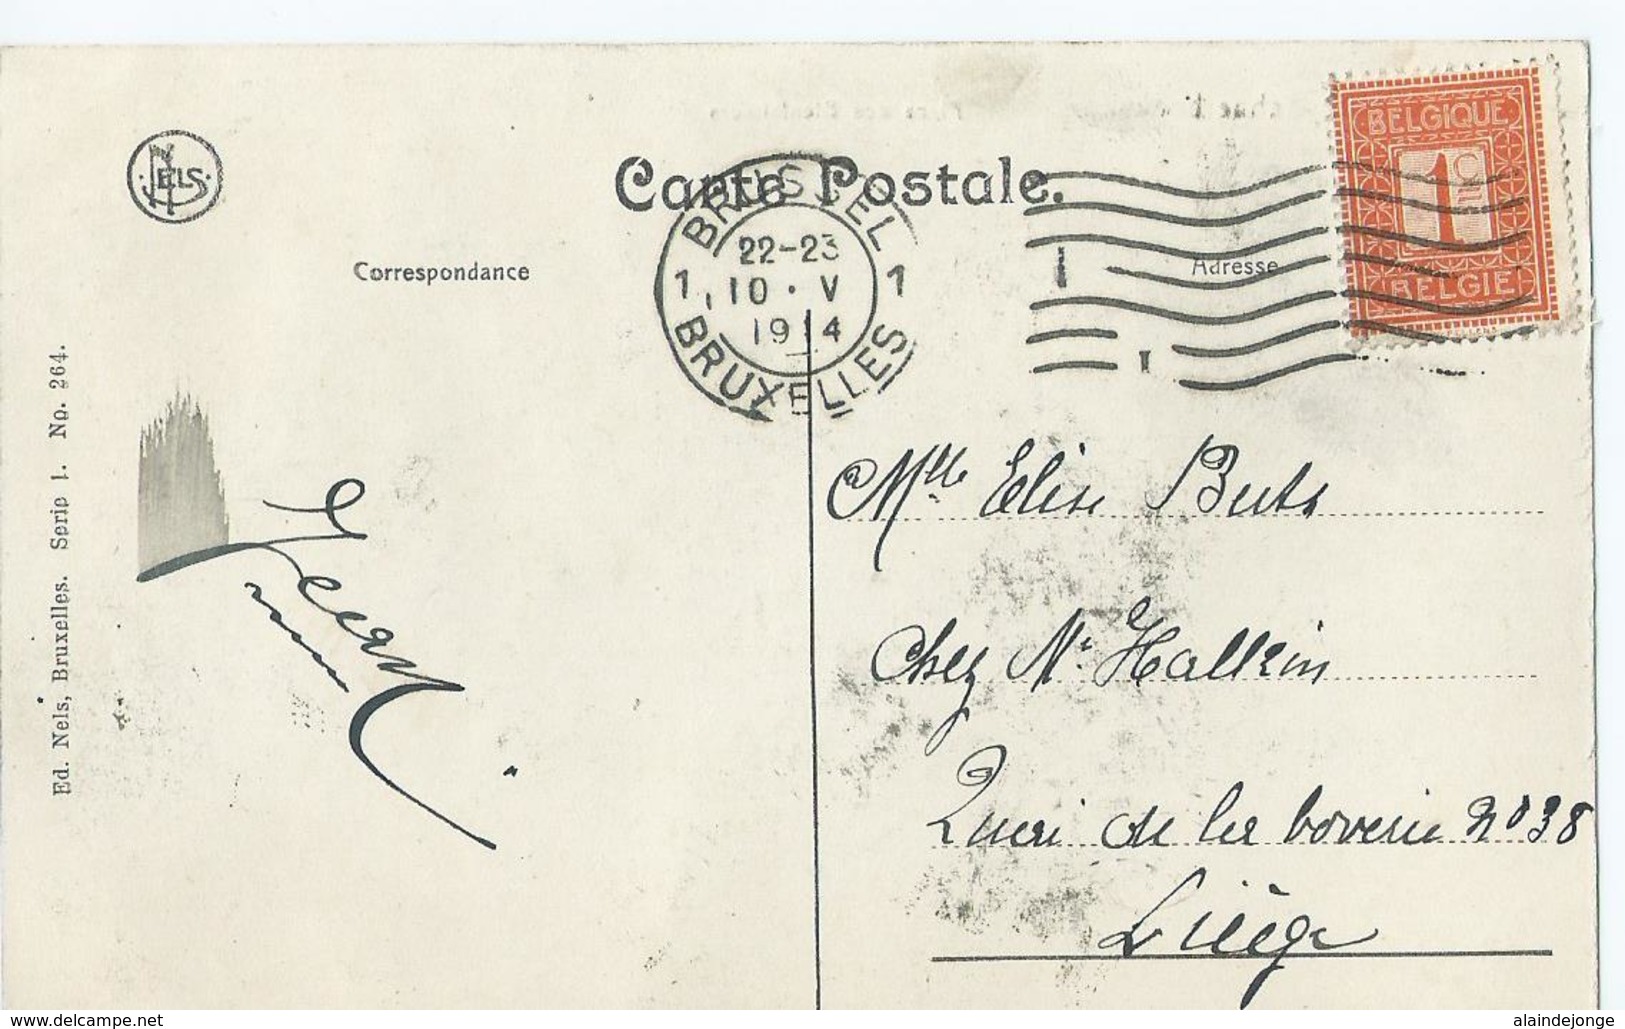 Carte Postale.
NELS
Correspondance
Adresse
BRUSSEL
22-23
1 10 · V 1
1914
BRUXELLES
BELGIQUE
1
BELGIE
Mlle Elise Buts
Chez Mr Hallkin
Quai de la boverie No 38
Liège
Ed. Nels, Bruxelles. Serie 1. No. 264.
www.delcampe.net
alaindejonge